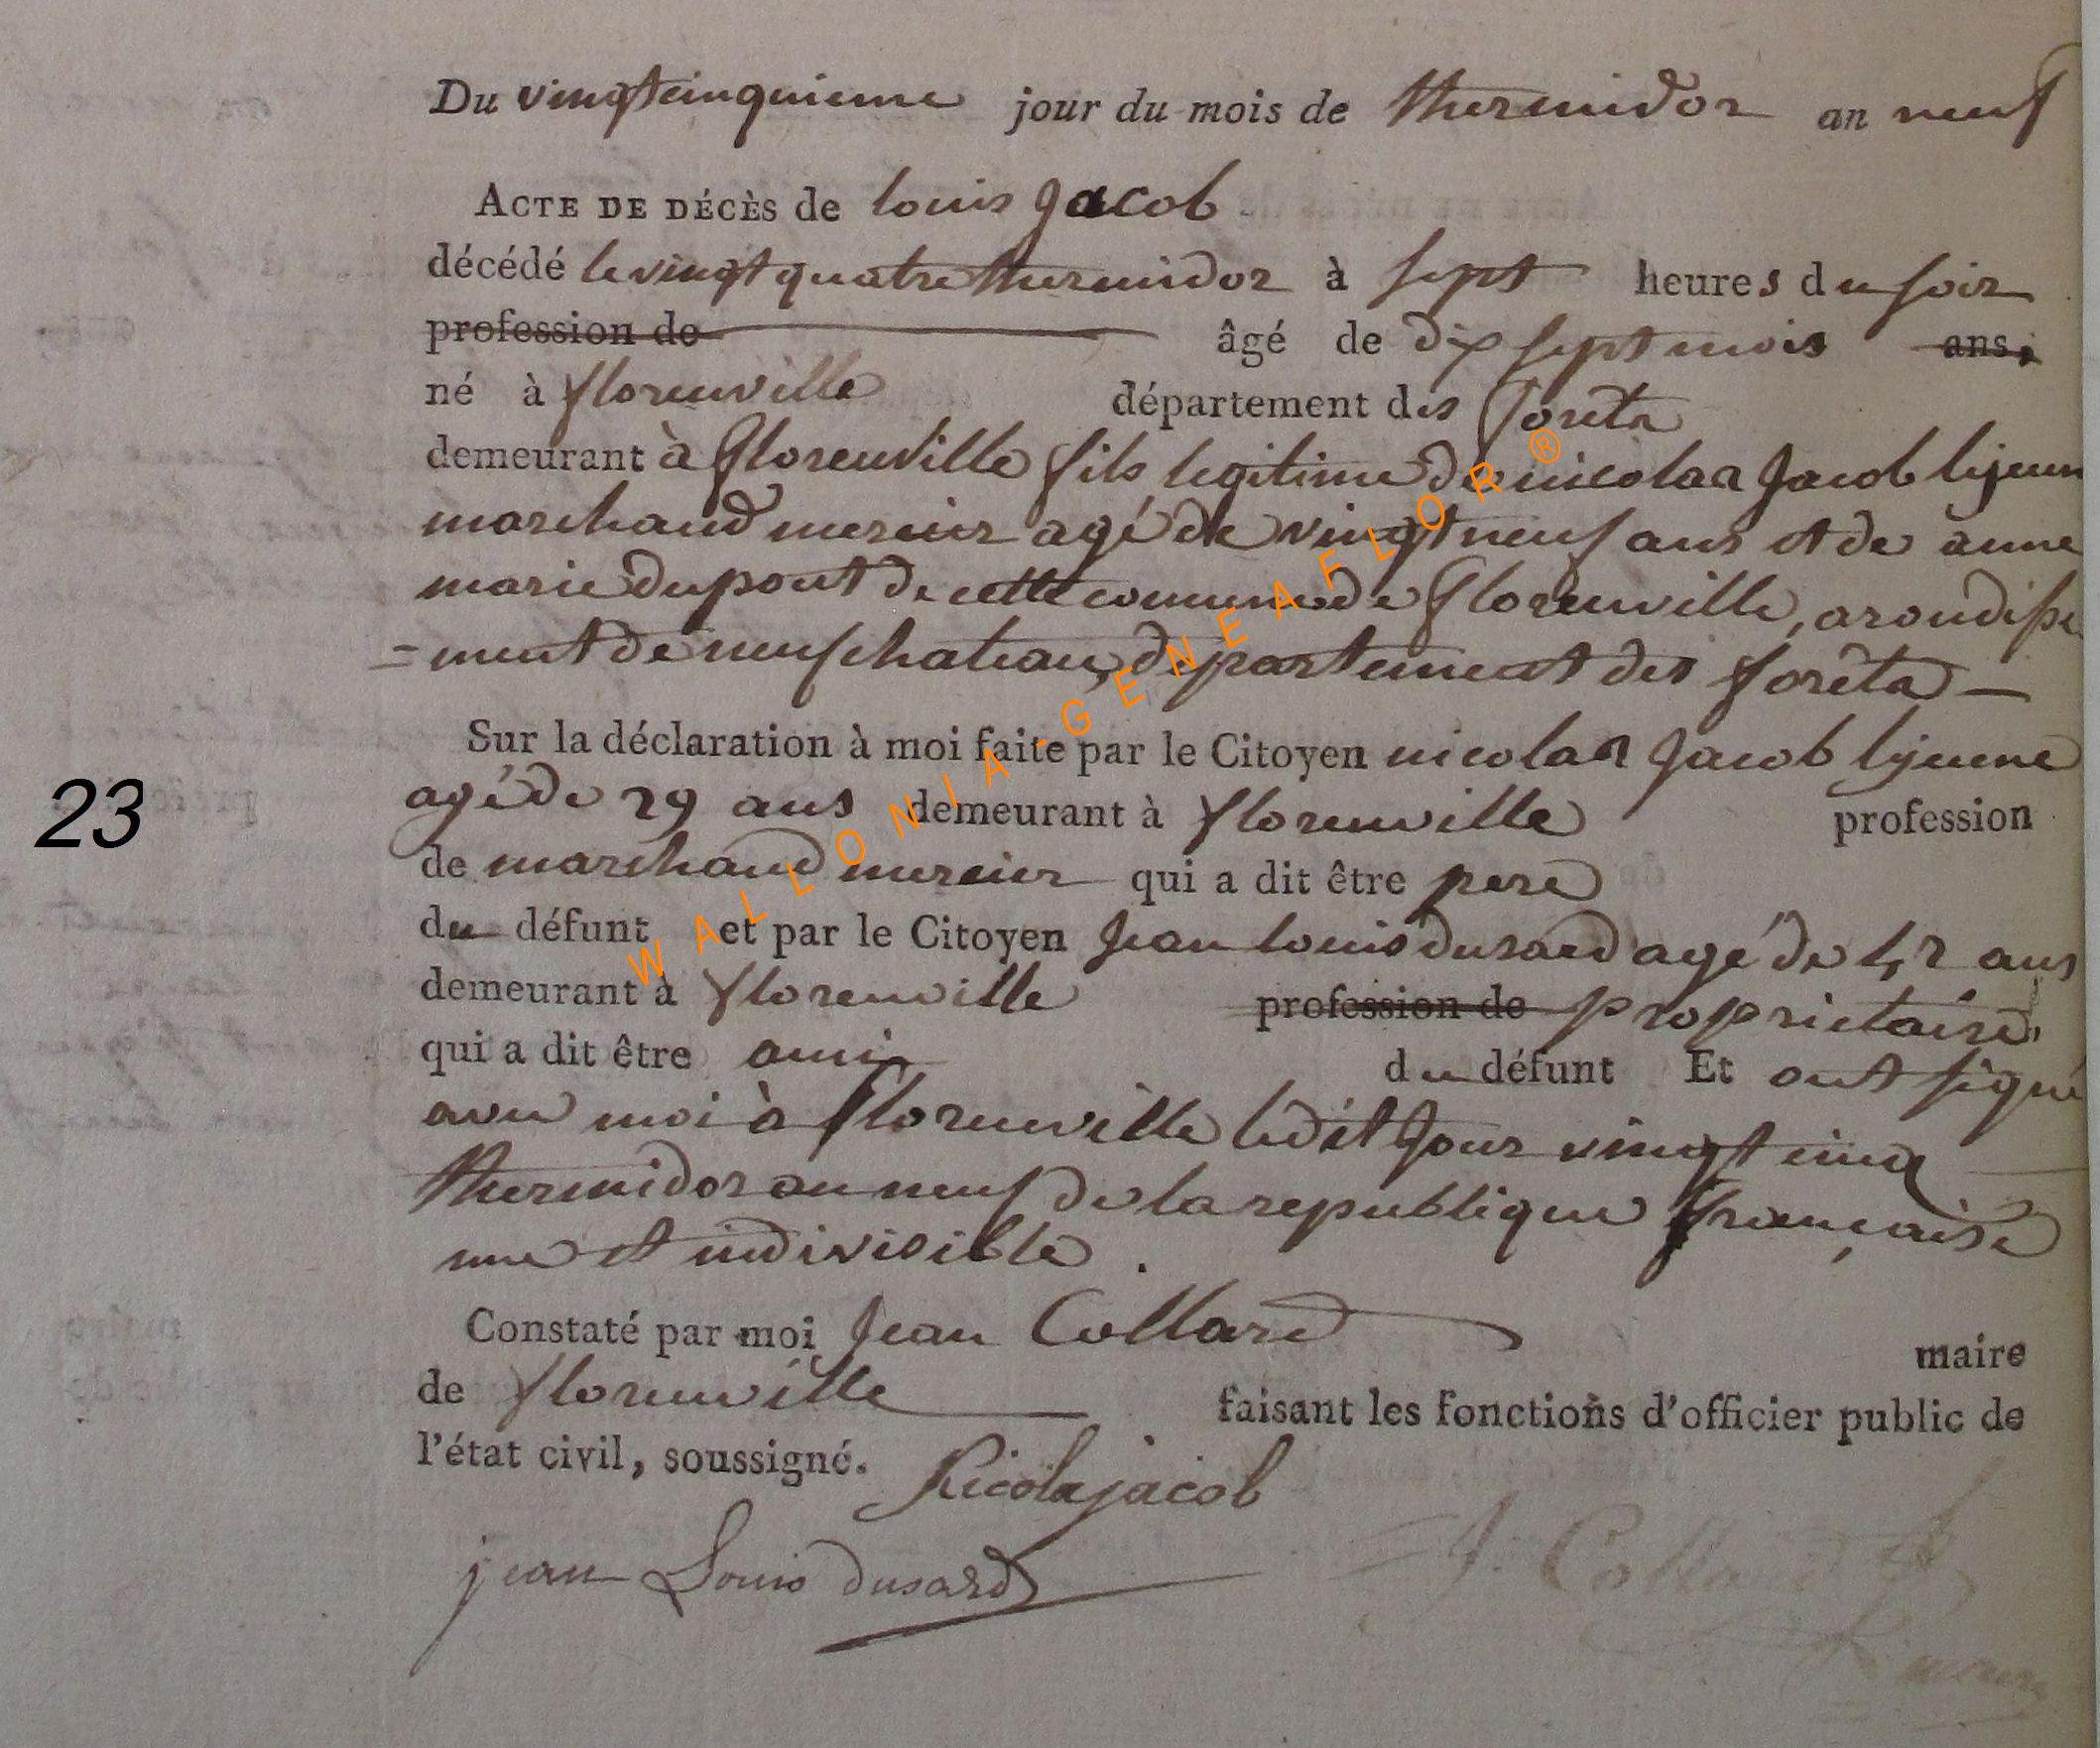 Du vingtcinquieme jour du mois de thermidor an neuf
ACTE DE DÉCÈS de louis Jacob
décédé le vingt quatre thermidor à sept heures du soir
profession de âgé de dix sept mois ans,
né à florenville département des forêts
demeurant à florenville fils legitime de nicolas Jacob lejeun
marchand mercier agé de vingt neuf ans et de anne
marie dupont de cette commune de florenville, arondisse
=ment de neufchateau, departement des forêts —
Sur la déclaration à moi faite par le Citoyen nicolas Jacob lejeune
23
agé de 29 ans demeurant à florenville profession
de marchand mercier qui a dit être pere
du défunt et par le Citoyen Jean louis dusard agé de 42 ans
demeurant à florenville profession de proprietaire,
qui a dit être ami du défunt Et ont signé
avec moi à florenville ledit Jour vingt cinq
thermidor an neuf de la republique française
une et indivisible.
Constaté par moi Jean Collard maire
de florenville faisant les fonctions d'officier public de
l'état civil, soussigné. Nicola jacob
jean Louis dusard J. Collard
WALLONIA-GENEAFLOR ®